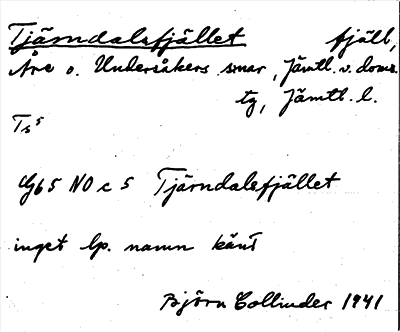 Tjärndalsfjället fjäll,
Åre o. Undersåkers smar, Jämtl. v. doms.
tg, Jämtl. l.
Ts⁵
Gb 5 NO c 5 Tjärndalsfjället
inget lp. namn känt
Björn Collinder 1941